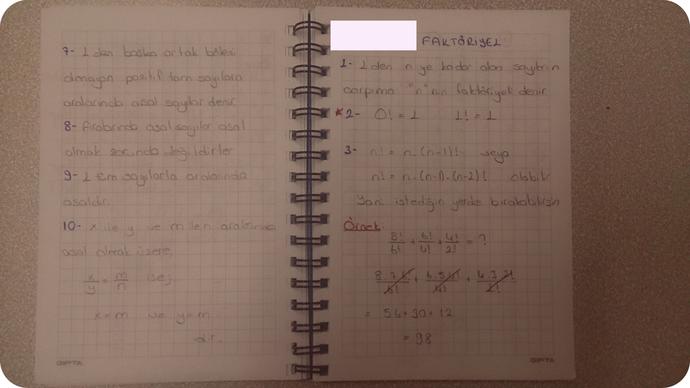 7- 1 den başka ortak böleni
olmayan pozitif tam sayılara
aralarında asal sayılar denir
8- Aralarında asal sayılar asal
olmak zorunda değildirler
9- 1 tüm sayılarla aralarında
asaldır.
10- x ile y ve m ile n aralarında
asal olmak üzere,
x/y = m/n ise;
x=m ve y=n
dir.
FAKTÖRİYEL
1- 1 den n ye kadar olan sayıların
çarpımına "n"nin faktöriyeli denir
*2- 0! = 1 1! = 1
3- n! = n.(n-1)! veya
n! = n.(n-1).(n-2)! olabilir
Yani istediğin yerde bırakabilirsin
Örnek:
8!/6! + 6!/4! + 4!/2! = ?
8.7.6!/6! + 6.5.4!/4! + 4.3.2!/2!
= 56+30+12
= 98